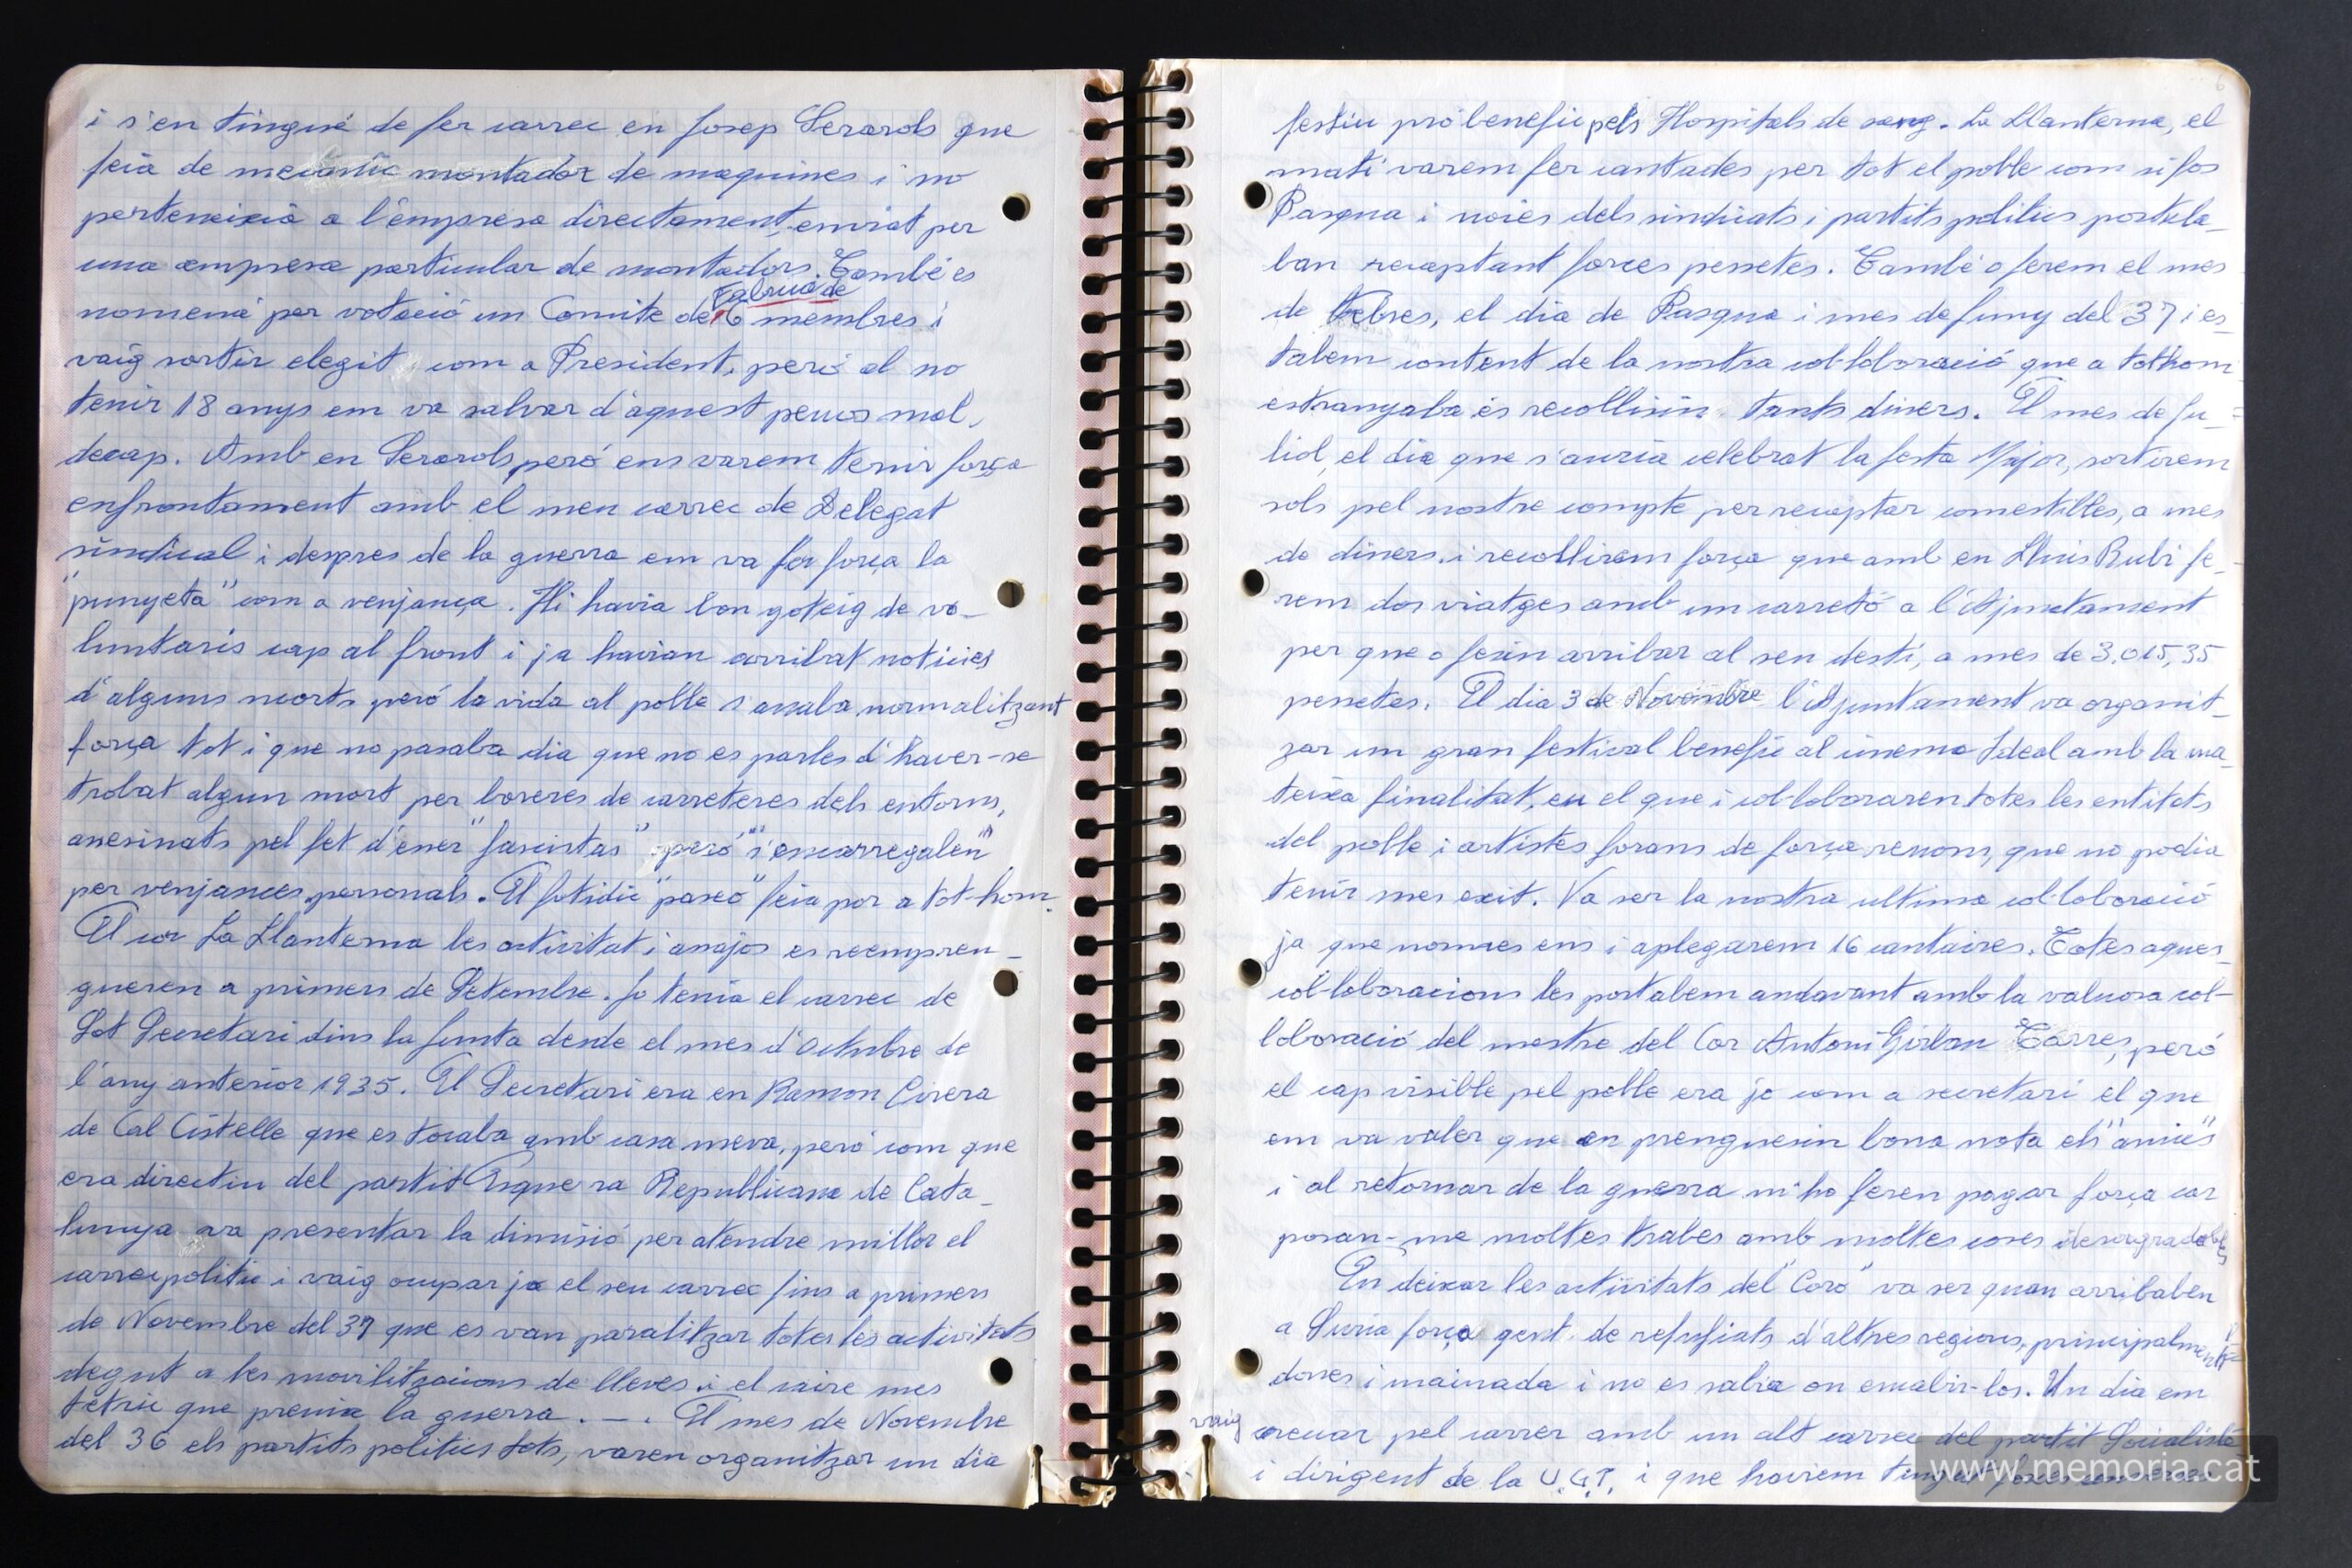 i s'en tingué de fer carrec en Josep Serarols que
feia de mecànic montador de maquines i no
perteneixià a l'empresa directament, enviat per
una empresa particular de montadors. També es
nomenà per votació un Comite de Fabrica de 6 membres i
vaig sortir elegit com a President, però al no
tenir 18 anys em va salvar d'aquest penca mal
decap. Amb en Serarols però ens varem tenir força
enfrontament amb el meu carrec de Delegat
sindical i despres de la guerra em va fer força la
"punyeta" com a venjança. Hi havia bon goteig de vo-
luntaris cap al front i ja havian arribat noticies
d'alguns morts però la vida al poble s'anaba normalitzant
força tot i que no pasaba dia que no es parles d'haver-se
trobat algun mort per boreres de carreteres dels entorns,
asesinats pel fet d'esser "fascistas" però "s'encarregaben"
per venjances personals. El fatidic "paseo" feia por a tot-hom.
El cor La Llanterna les activitat i assajos es reempren-
gueren a primers de Setembre. Jo tenia el carrec de
Sot Secretari dins la Junta desde el mes d'Octubre de
l'any anterior 1935. El Secretari era en Ramon Civera
de Cal Cistelle que es tocaba amb casa meva, però com que
era directiu del partit Esquerra Republicana de Cata-
lunya va presentar la dimisió per atendre millor el
carrec politic i vaig ocupar jo el seu carrec fins a primers
de Novembre del 37 que es van paralitzar totes les activitats
degut a les movilitzacions de lleves i el caire mes
tetric que prenia la guerra. —. El mes de Novembre
del 36 els partits politics tots, varen organitzar un dia
6
festiu pro benefic pels Hospitals de sang. La Llanterna, el
mati varem fer cantades per tot el poble com si fos
Pasqua i noies dels sindicats i partits politics postula-
ban recaptant forces pessetes. També o ferem el mes
de Febrer, el dia de Pasqua i mes de Juny del 37 i es-
tabem content de la nostra col·loboració que a tothom
estranyaba es recollisin tants diners. El mes de Ju-
liol, el dia que s'auria celebrat la festa Major, sortirem
sols pel nostre compte per recaptar comestibles, a mes
de diners, i recollirem força que amb en Lluis Rubi fe-
rem dos viatges amb un carretó a l'Ajuntament
per que o fesin arribar al seu desti, a mes de 3.015,35
pessetes. El dia 3 de Novembre l'Ajuntament va organit-
zar un gran festival benefic al cinema Ideal amb la ma-
teixa finalitat, en el que i col·loboraren totes les entitats
del poble i artistes forans de força renom, que no podia
tenir mes exit. Va ser la nostra ultima col·loboració
ja que nomes ens i aplegarem 16 cantaires. Totes aques-
col·loboracions les portabem andavant amb la valuosa col-
loboració del mestre del Cor Antoni Girban Tarres, però
el cap visible pel poble era jo com a secretari el que
em va valer que en prenguesin bona nota els "amics"
i al retornar de la guerra m'ho feren pagar força car
posan-me moltes trabes amb moltes coses desagradables
En deixar les activitats del "Coro" va ser quan arribaben
a Suria força gent de refugiats d'altres regions, principalment
dones i mainada i no es sabia on encabir-los. Un dia em
vaig creuar pel carrer amb un alt carrec del partit Socialiste
i dirigent de la U.G.T. i que haviem tingut
www.memoria.cat